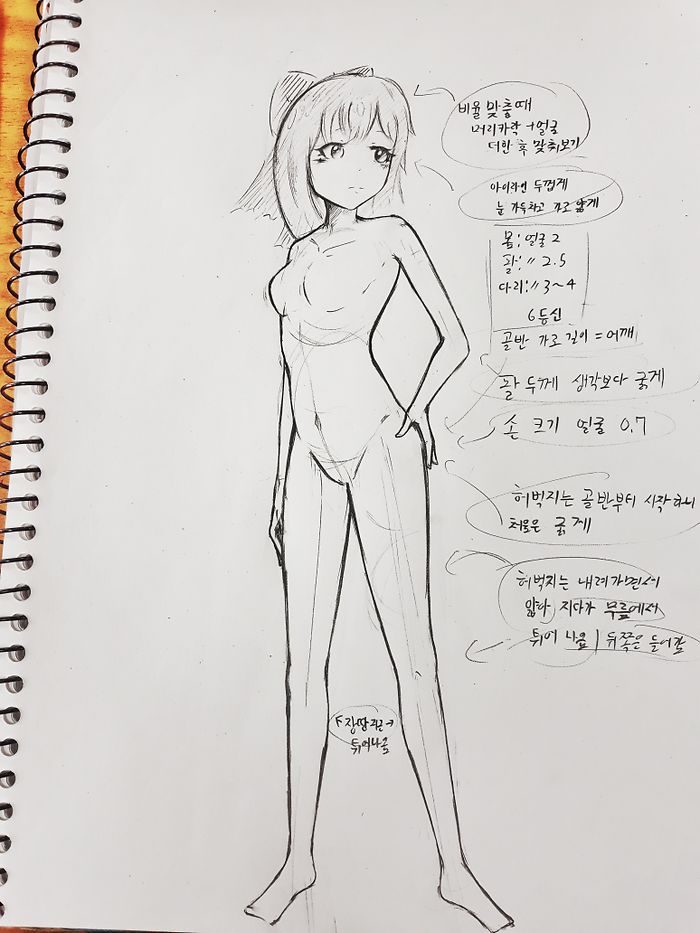 비율 맞출때
머리카락 + 얼굴
더한 후 맞춰보기
아이라인 두껍게
눈 가득차고 가로 얇게
몸 : 얼굴 2
팔 : 〃 2.5
다리 : 〃 3~4
6등신
골반 가로 길이 = 어깨
팔 두께 생각보다 굵게
손 크기 얼굴 0.7
허벅지는 골반부터 시작하니
처음은 굵게
허벅지는 내려가면서
얇아지다가 무릎에서
튀어 나옴 | 뒤쪽은 들어감
튀어나옴